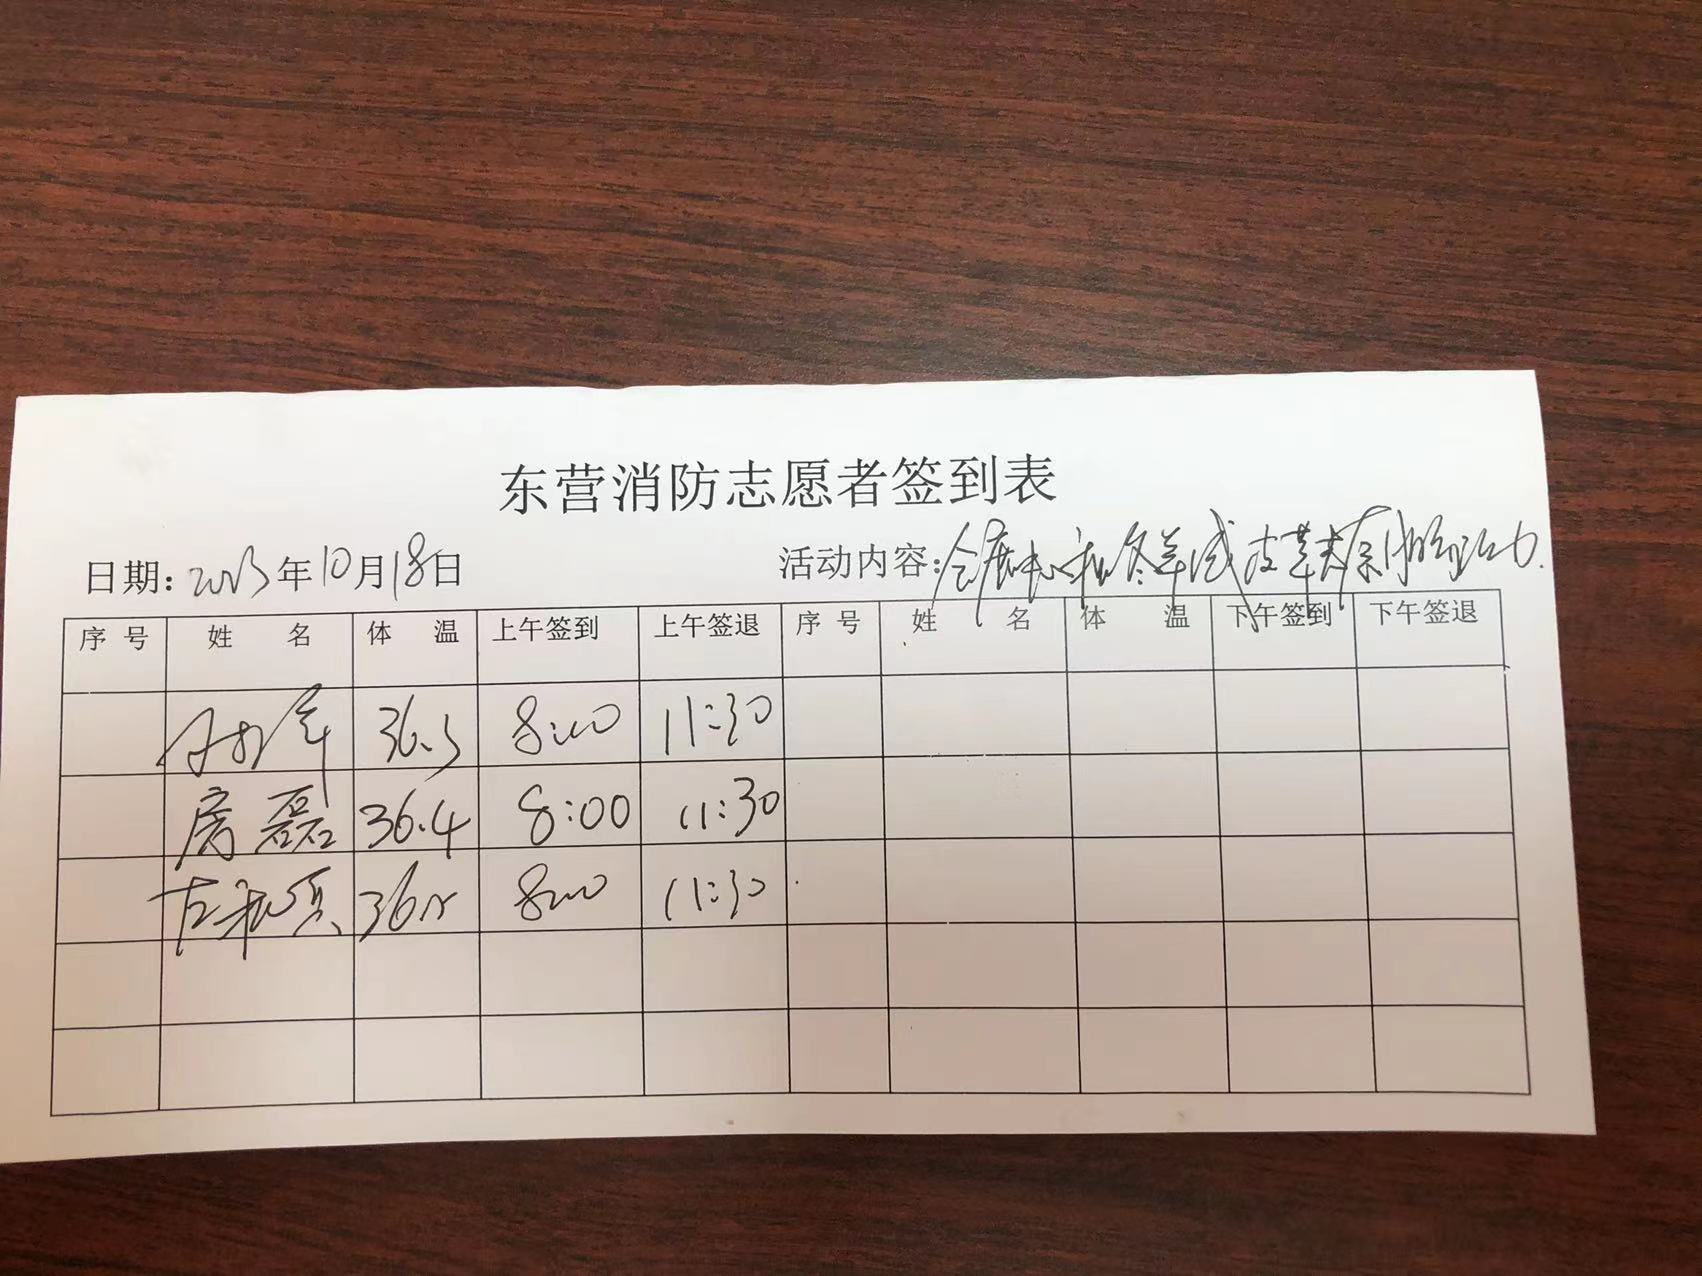 东营消防志愿者签到表
日期: 2023年10月18日 活动内容: 会展中心秋冬羊绒皮草
序号 姓名 体温 上午签到 上午签退 序号 姓名 体温 下午签到 下午签退
36.5 8:00 11:30
房磊 36.4 8:00 11:30
36.5 8:00 11:30